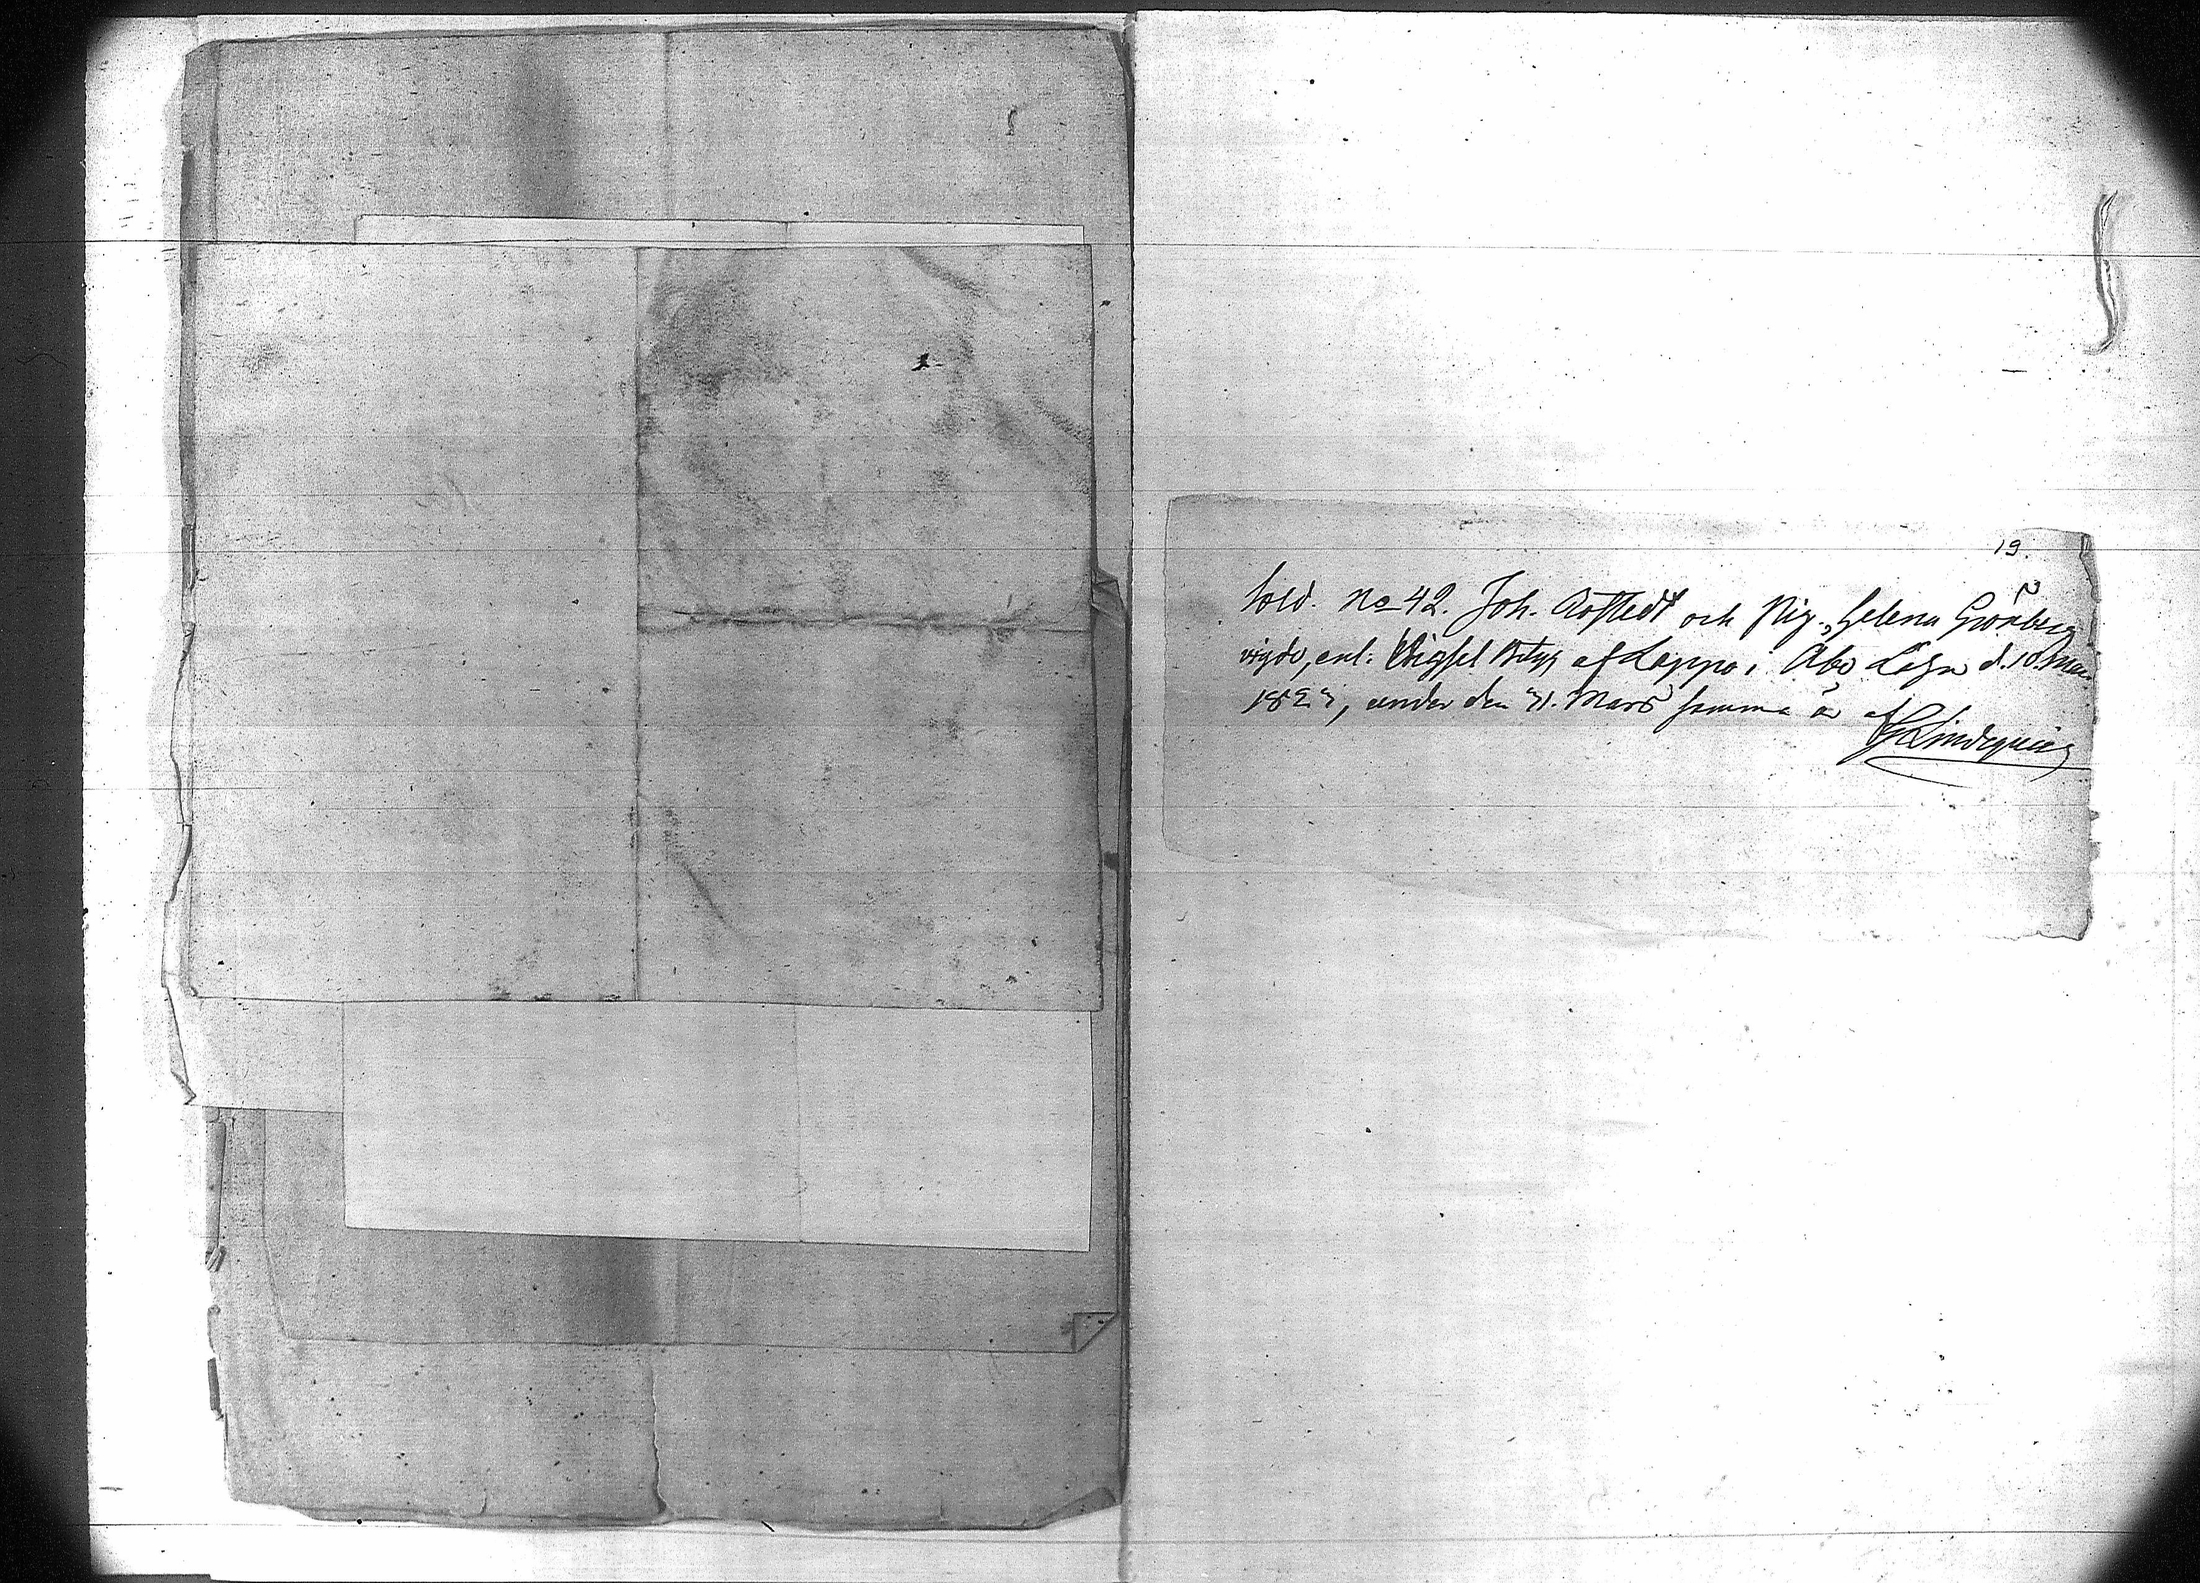 19.
Sold. No 42. Joh. Rosstedt och Pig. Helena Grönberg
vigde, enl: Vigsel Betyg af Lappo i Åbo Lähn d. 10. Mars
182, under den 31. Mars samma år af
Lindeqvist